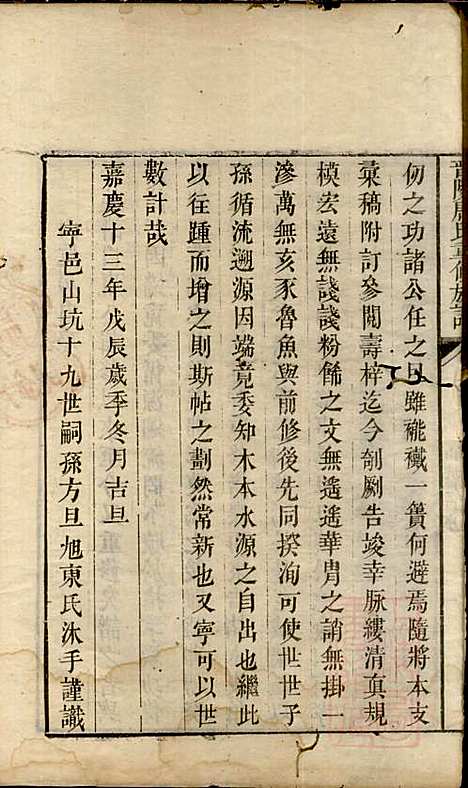 仞之功諸公任之日雖襱襶一簣何遜焉隨將本支
彙稿附訂參閱壽梓迄今剞劂告竣幸脉縷清真規
模宏遠無諓諓粉餙之文無遙遙華胄之誚無掛一
滲萬無亥豕魯魚與前修後先同揆洵可使世世子
孫循流遡源因端竟委知木本水源之自出也繼此
以往踵而增之則斯帖之劃然常新也又寧可以世
數計哉
嘉慶十三年戊辰歲季冬月吉旦
寧邑山坑十九世嗣孫方旦旭東氏沐手謹識